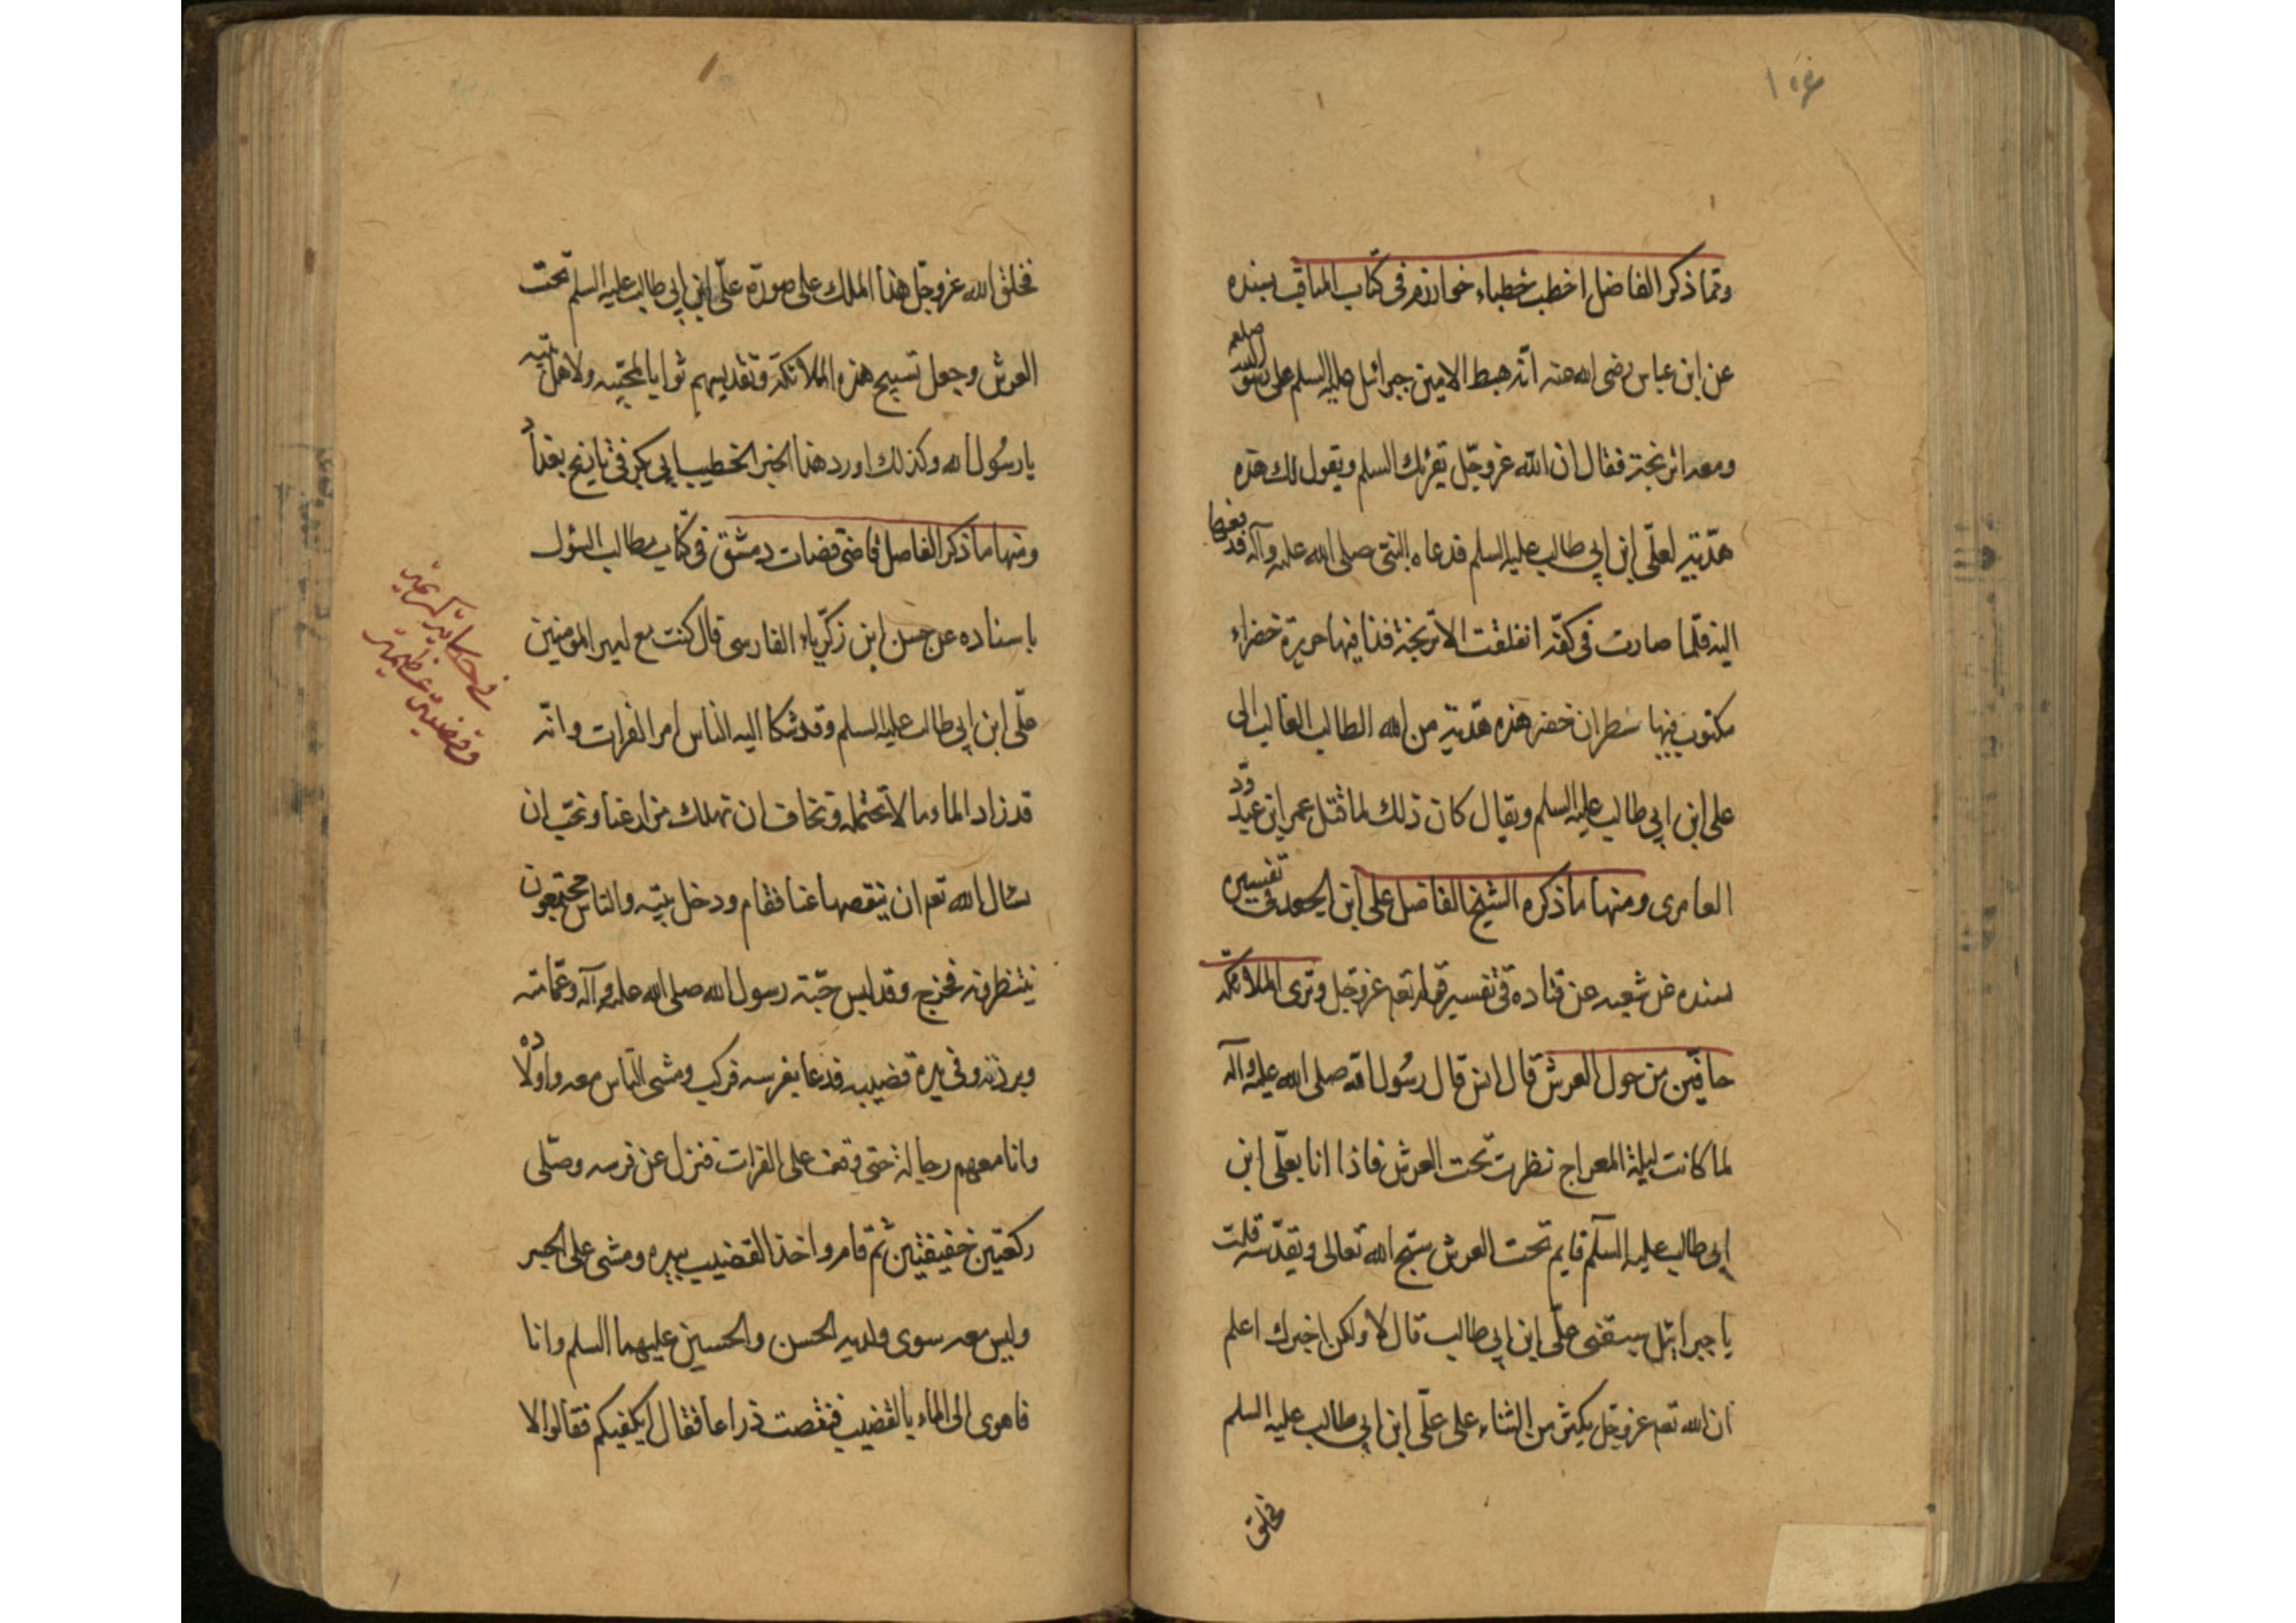 وتما ذكر الفاضل اخطب خطباء خوارزم فى كتاب المناقب بسنده
عن ابن عباس رضى الله عنه انه هبط الامين جبرائيل عليه السلم على رسول الله صلعم
ومعه اترنجة فقال ان الله عزوجل يقرئك السلم ويقول لك هذه
هدية لعلى ابن ابى طالب عليه السلم فدعاه النبى صلى الله عليه وآله فدفعها
اليه فلما صارت فى كفه انفلقت الاترنجة فاذا فيها حريرة خضراء
مكتوب فيها سطران خضر هذه هدية من الله الطالب الغالب الى
على ابن ابى طالب عليه السلم ويقال كان ذلك لما قتل عمر ابن عبدود
العامرى ومنها ما ذكره الشيخ الفاضل على ابن فى تفسيره
بسنده عن شعبه عن قتاده فى تفسير قوله تعم عزوجل وترى الملائكة
حافين من حول العرش قال انس قال رسول الله صلى الله عليه وآله
لما كانت ليلة المعراج نظرت تحت العرش فاذا انا بعلى ابن
ابى طالب عليه السلم قايم تحت العرش يسبح الله تعالى ويقدسه قلت
يا جبرائيل سبقنى على ابن ابى طالب قال لا ولكن اخبرك اعلم
ان الله تعم عزوجل يكثر من الثناء على على ابن ابى طالب عليه السلم
فخلق
فخلق الله عزوجل هذا الملك على صورة على ابن ابى طالب عليه السلم تحت
العرش وجعل تسبيح هذه الملائكة وتقديسهم ثوابا لمحبيه ولاهل بيته
يا رسول الله وكذلك اورد هذا الخبر الخطيب ابى بكر فى تاريخ بغداد
ومنها ما ذكر الفاصل قاضى قضات دمشق فى كتاب مطالب السئول
باسناده عن حسن ابن زكرياء الفارسى قال كنت مع امير المومنين
على ابن ابى طالب عليه السلم وقد شكا اليه الناس امر الفرات وانه
قد زاد الماء ما لا نحتمله ونخاف ان تهلك مزارعنا ونحب ان
نسال الله تعم ان ينقصها عنا فقام ودخل بيته والناس مجتمعون
ينتظرونه فخرج وقد لبس جبة رسول الله صلى الله عليه وآله وعمامته
وبردته وفى يده قضيبه فدعا بفرسه فركب ومشى الناس معه واولاده
وانا معهم رجالة حتى وقف على الفرات فنزل عن فرسه وصلى
ركعتين خفيفتين ثم قام واخذ القضيب بيده ومشى على الجسر
وليس معه سوى ولديه الحسن والحسين عليهما السلم وانا
فاهوى الى الماء بالقضيب فنقصت ذراعا فقال ايكفيكم فقالوا لا
فى حكاية كريمة
وفضيلة عظيمة